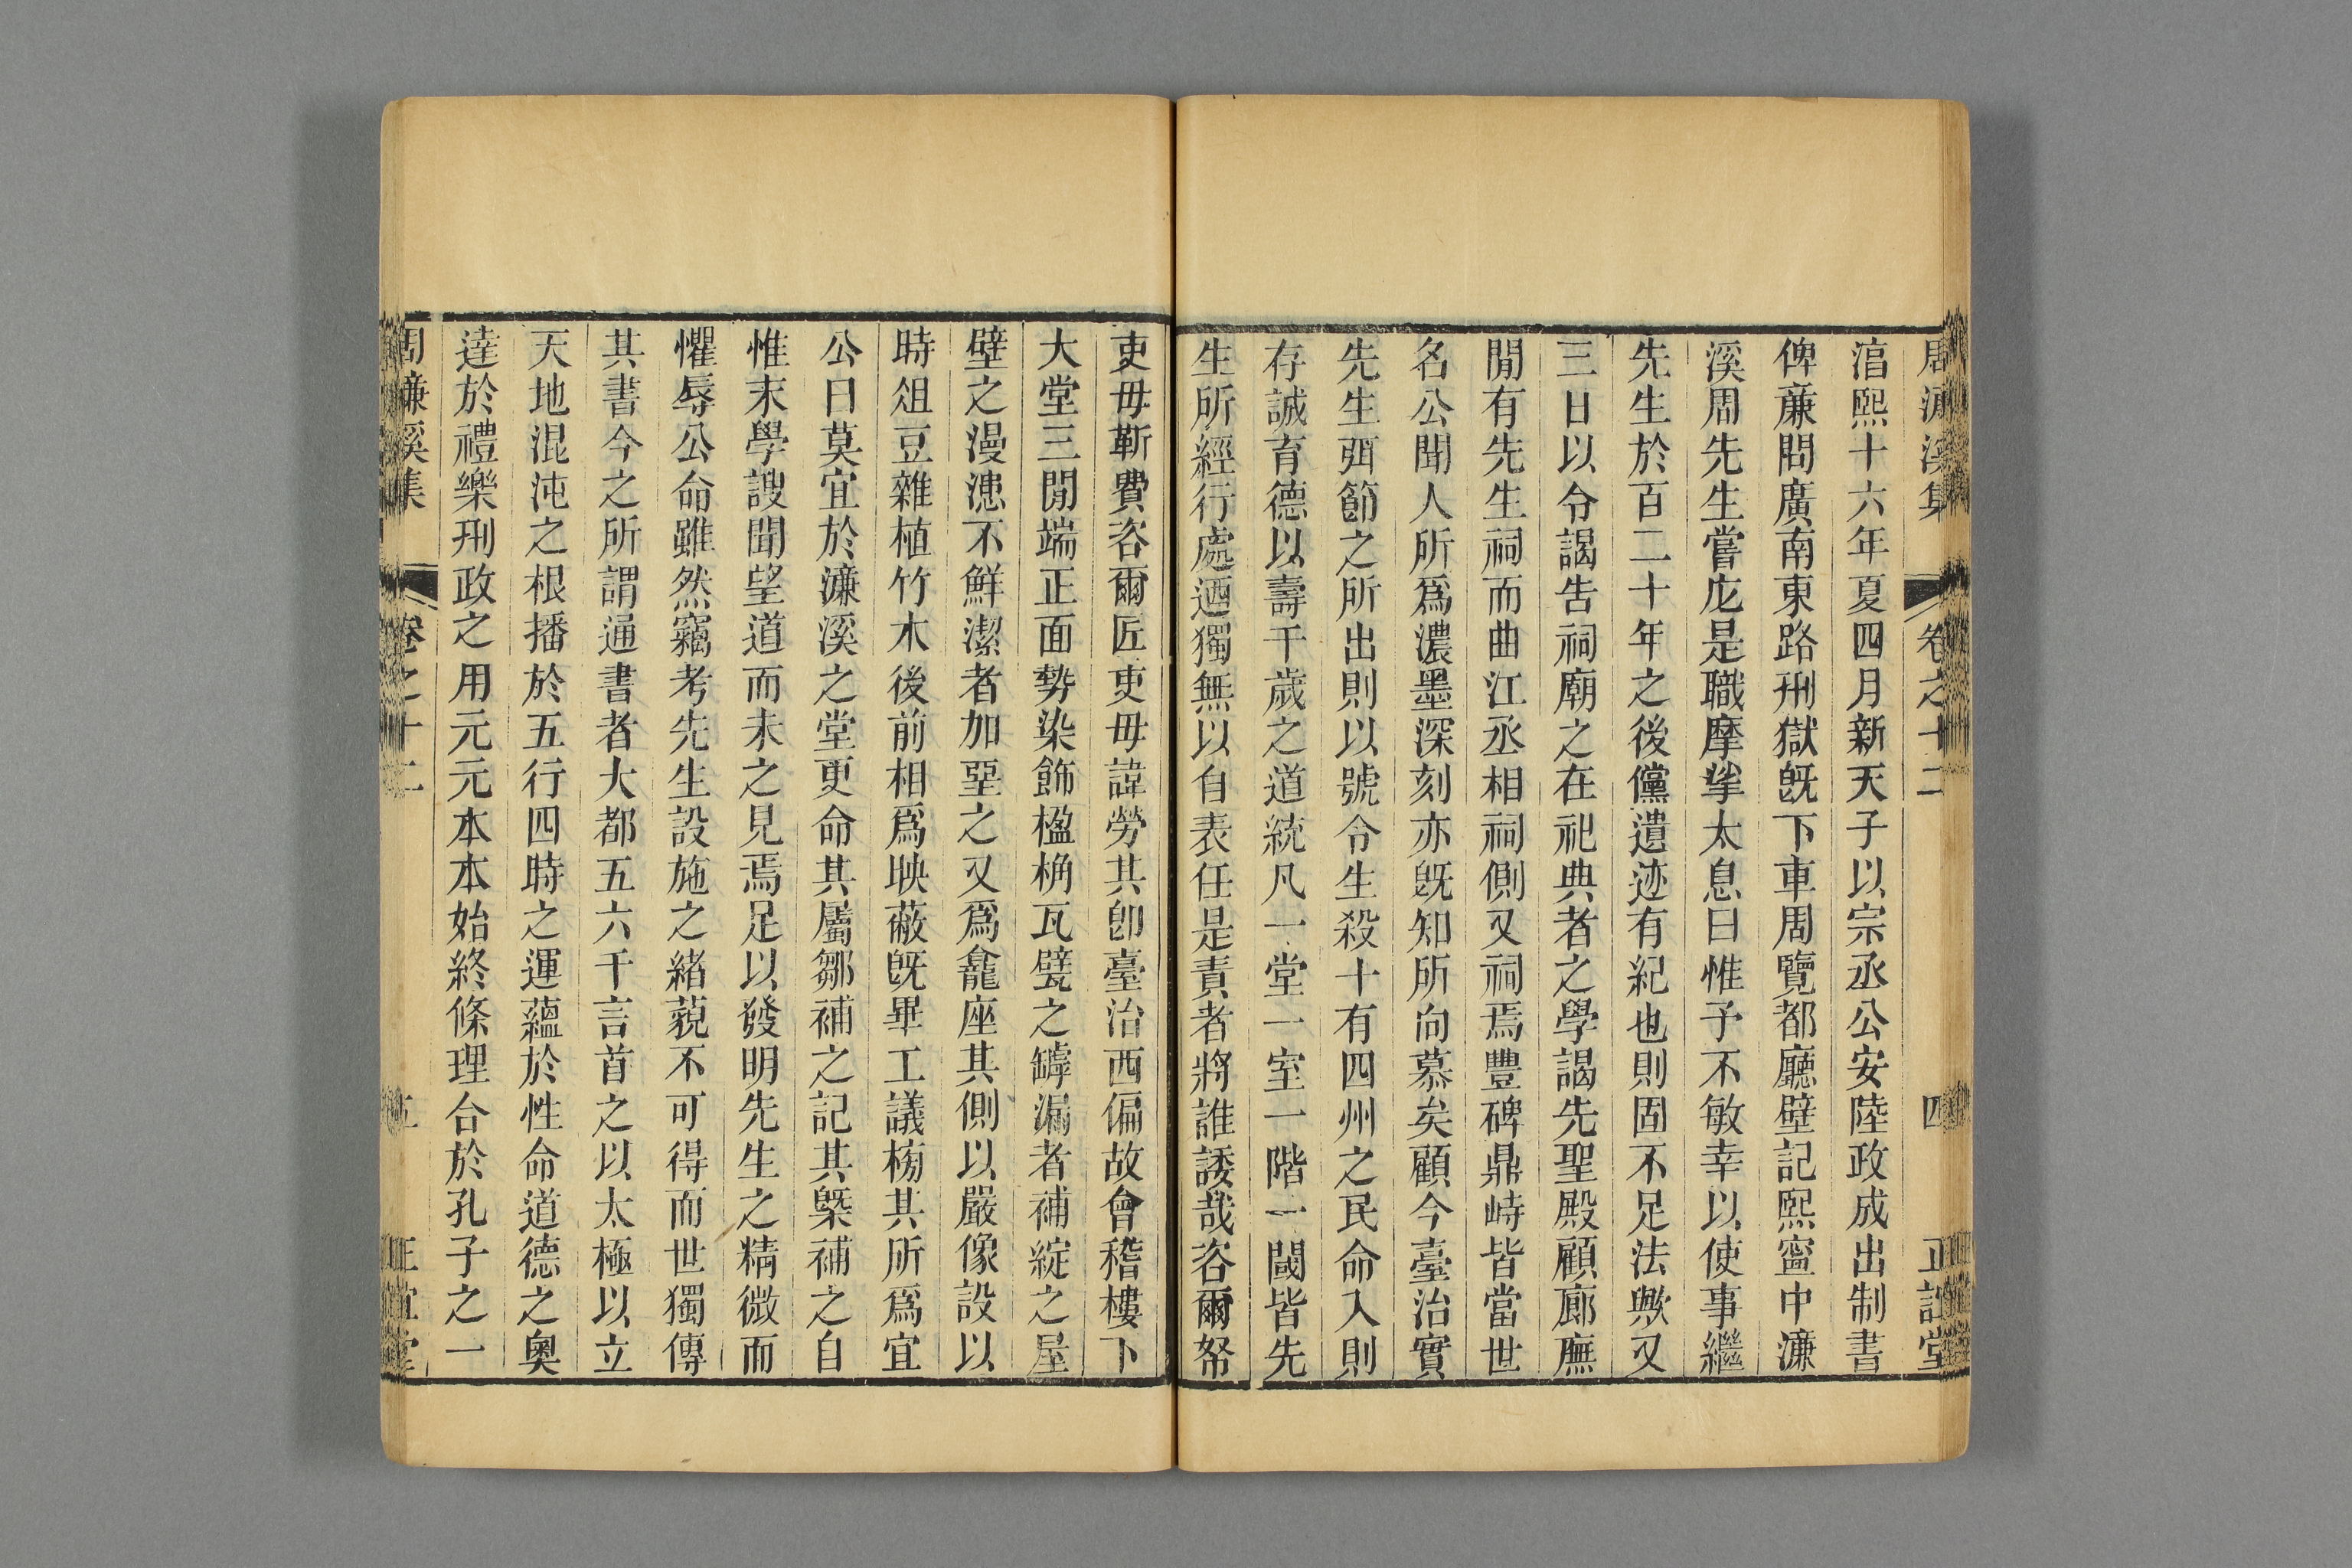 周濂溪集 卷之十二 四 正誼堂
湻熙十六年夏四月新天子以宗丞公安陸政成出制書
俾亷問廣南東路刑獄旣下車周覽都廳壁記熙寍中濂
溪周先生嘗庀是職摩挲太息曰惟予不敏幸以使事繼
先生於百二十年之後儻遺迹有紀也則固不足法歟又
三日以令謁告祠廟之在祀典者之學謁先聖殿顧廊廡
閒有先生祠而曲江丞相祠側又祠焉豐碑鼎峙皆當世
名公聞人所爲濃墨深刻亦旣知所向慕矣顧今臺治實
先生弭節之所出則以號令生殺十有四州之民命入則
存誠育德以壽千歲之道統凡一堂一室一階一閾皆先
生所經行處迺獨無以自表任是責者將誰諉哉咨爾帑
吏毋靳費咨爾匠吏毋諱勞其卽臺治西偏故會稽樓下
大堂三閒端正面勢染飾楹桷瓦甓之罅漏者補綻之屋
壁之漫漶不鮮潔者加堊之又爲龕座其側以嚴像設以
時俎豆雜植竹木後前相爲映蔽旣畢工議榜其所爲宜
公曰莫宜於濂溪之堂更命其屬鄒補之記其槩補之自
惟末學謏聞望道而未之見焉足以發明先生之精微而
懼辱公命雖然竊考先生設施之緒藐不可得而世獨傳
其書今之所謂通書者大都五六千言首之以太極以立
天地混沌之根播於五行四時之運蘊於性命道德之奧
達於禮樂刑政之用元元本本始終條理合於孔子之一
周濂溪集 卷之十二 五 正誼堂